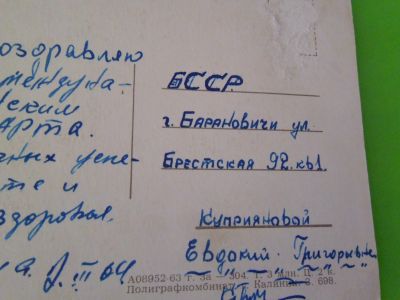 оздравляю
менду на-
ским
арта.
чных успе-
те и
здоровья.
БССР.
г. Барановичи ул.
Брестская 92. кв1.
Куприяновой
Евдокий. Григорьевне
А08952 63 г. За — 304. Т. 3 млн. Ц. 2 к.
Полиграфкомбинат г. Калинин. З. 698.